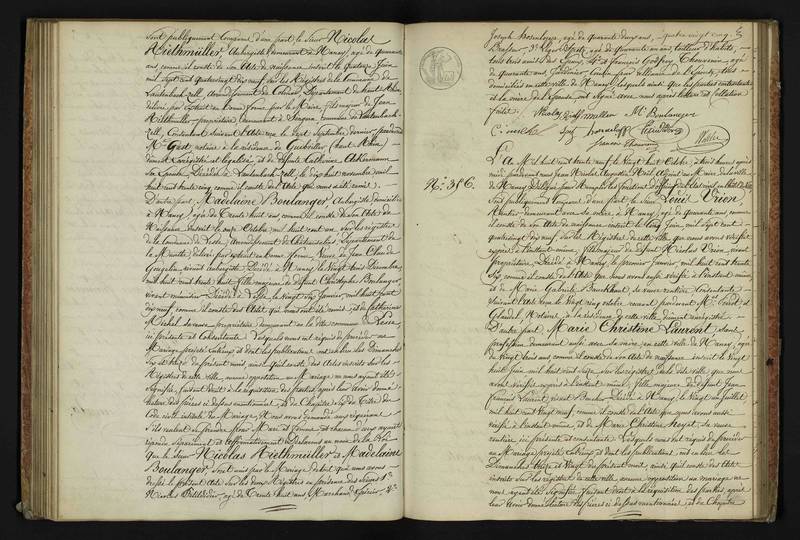 Sont publiquement comparus d'une part le Sieur Nicolas
Riethmüller, Aubergiste, demeurant à Nancy, agé de quarante
ans, comme il conste de son Acte de naissance inscrit le quatorze Juin
mil Sept cent quatrevingt dix neuf sur les Registres de la Commune de
Lautenbach-zell, Arrondissement de Colmar, Département du haut Rhin,
délivré par extrait en bonne forme par le Maire, fils majeur de Jean
Riethmüller, propriétaire, demeurant à Sengern, commune de Lautenbach-
zell, Consentant suivant Acte reçu le Sept Septembre dernier, pardevant
Me Gast, notaire à la résidence de Guebviller (haut Rhin),
dûment Enregistré et légalisé, et de défunte Catherine Ackermann
son Epouse, Décédée à Lautenbach-zell, le dix huit novembre mil
huit cent trente cinq, comme il conste de l'Acte qui nous a été remis.
D'autre part, Madelaine Boulanger, Aubergiste, domiciliée
à Nancy, agée de Trente huit ans comme il conste de son Acte de
Naissance inscrit le onze Octobre mil huit cent un, sur les registres
de la Commune de Lesse, Arrondissement de Château-Salins, Département
de la Meurthe, délivré par extrait en bonne forme, Veuve de Jean Claude
vivant Aubergiste, Décédé à Nancy, le Vingt trois Décembre
mil huit cent trente huit, Fille majeure de défunt Christophe Boulanger,
vivant Décédé à Lesse, le Vingt cinq Janvier, mil huit cent
dix neuf, comme il conste des Actes qui nous ont été remis, et de Catherine
Michel, sa veuve propriétaire, demeurant en la dite commune de Lesse,
ici présente et Consentante. Lesquels nous ont requis de procéder au
Mariage projeté entr'eux et dont les publications ont eu lieu les Dimanches
Six et treize du présent mois, ainsi qu'il conste des Actes inscrits sur les
Registres de cette ville, aucune opposition au Mariage ne nous ayant été
signifiée, faisant droit à la réquisition des parties, après leur avoir donné
lecture des pièces ci dessus mentionnées, et du Chapitre six du Titre du
Code civil intitulé du Mariage, Nous avons demandé aux requérans
S'ils veulent se prendre pour Mari et femme, et chacun d'eux ayant
répondu Séparément et affirmativement, Déclarons au nom de la Loi
que le Sieur Nicolas Riethmüller & Madelaine
Boulanger, sont unis par le Mariage. Dequoi que nous avons
dressé le présent acte sur les deux Registres en présence des Sieurs 1°.
Nicolas agé de Trente huit ans, Marchand Epicier, 2°.
Joseph agé de quarante deux ans,
Brasseur, 3°. Léger agé de quarante un ans, tailleur d'habits,
tous trois amis des Epoux, 4°. et François Godfroy Thouvenin, agé
de quarante ans, Jardinier, Cousin par alliance de l'Epouse, tous
domiciliés en cette ville de Nancy, lesquels ainsi que les parties contractantes
et la mère de l'Epouse, ont signé avec nous après lecture et Collation
faites.
Nicolas Riethmuller Mne Boulanger
françois thouvenin
N°. 316.
L'An Mil huit cent trente neuf, le Vingt huit Octobre, à trois heures après
midi, pardevant nous Jean Nicolas Augustin Adjoint au Maire de la ville
de Nancy, délégué pour remplir les fonctions d'officier de l'Etat civil
Sont publiquement comparus d'une part, le Sieur Louis Vrion,
Rentier, demeurant avec sa mère à Nancy, agé de quarante ans, comme
il conste de son Acte de naissance inscrit le Cinq Juin, mil Sept cent
quatrevingt dix neuf, sur les Registres de cette ville, que nous avons vérifié
exprès à l'instant même, fils majeur de défunt Nicolas Vrion, vivant
propriétaire, Décédé à Nancy, le premier Janvier, mil huit cent trente
Six, comme il conste de l'Acte que Nous avons aussi vérifié à l'instant même,
et de Marie Gabrielle sa veuve rentière, Consentante
suivant Acte reçu le Vingt cinq octobre courant, pardevant Me. et
Notaires à la résidence de cette ville, dûment enregistré.
D'autre part, Marie Christine Laurent, sans
profession demeurant aussi avec sa mère, en cette ville de Nancy, agée
de Vingt trois ans, comme il conste de son Acte de naissance inscrit le Vingt
huit Juin, mil huit cent seize sur les registres de cette ville, que nous
avons Vérifié exprès à l'instant même, Fille majeure de défunt Jean
François Laurent, vivant Boucher, Décédé à Nancy, le Vingt un Juillet
mil huit cent Vingt neuf, comme il conste de l'Acte, que nous avons aussi
vérifié à l'instant même, et de Marie Christine Noyet, sa veuve
rentière ici présente et consentante. Lesquels nous ont requis de procéder
au Mariage projeté entr'eux, et dont les publications, ont eu lieu les
Dimanches treize et Vingt du présent mois, ainsi qu'il conste des Actes
inscrits sur les registres de cette ville, aucune opposition au mariage ne
nous ayant été signifiée, faisant droit à la réquisition des parties, après
leur avoir donné lecture des pièces ci dessus mentionnées, et du Chapitre